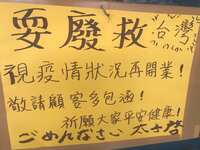 耍廢救台灣
視疫情狀況再開業！
敬請顧客多包涵！
祈願大家平安健康！
ごめんなさい